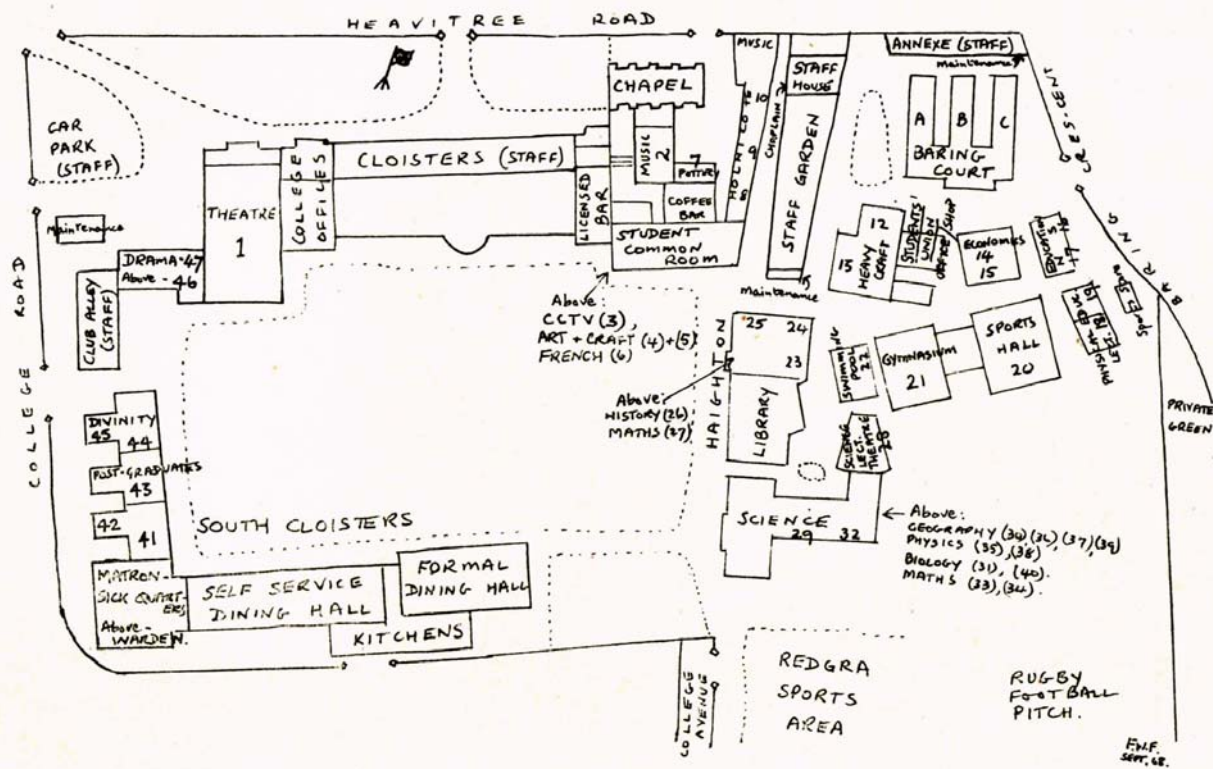 HEAVITREE ROAD
CAR
PARK
(STAFF)
Maintenance
THEATRE
1
COLLEGE
OFFICES
CLOISTERS (STAFF)
LICENSED
BAR
CHAPEL
MUSIC
2
7
POTTERY
COFFEE
BAR
STUDENT
COMMON
ROOM
MUSIC
HOLNICOTE
10
9
8
CHAPLAIN
STAFF
HOUSE
STAFF GARDEN
Maintenance
ANNEXE (STAFF)
maintenance
A B C
BARING
COURT
BARING CRESCENT
12
13
HEAVY
CRAFT
STUDENTS'
UNION
OFFICE
SHOP
ECONOMICS
14
15
EDUCATION
16
17
PHYSICAL EDUC.
LECT. 18, 19
Sports Store
SPORTS
HALL
20
GYMNASIUM
21
SWIMMING
POOL
22
PRIVATE
GREEN
COLLEGE ROAD
DRAMA-47
Above - 46
CLUB ALLEY
(STAFF)
Above
CCTV (3),
ART + CRAFT (4)+(5)
FRENCH (6)
HAIGHTON
25 24
23
LIBRARY
Above:
HISTORY (26)
MATHS (27)
SCIENCE
LECT.
THEATRE
28
SCIENCE
29 32
Above:
GEOGRAPHY (30)(36),(37),(39)
PHYSICS (35),(38)
BIOLOGY (31), (40).
MATHS (33),(34).
DIVINITY
45 44
POST-GRADUATES
43
42
41
SOUTH CLOISTERS
MATRON-
SICK QUART-
ERS
Above-
WARDEN.
SELF SERVICE
DINING HALL
FORMAL
DINING HALL
KITCHENS
COLLEGE
AVENUE
REDGRA
SPORTS
AREA
RUGBY
FOOTBALL
PITCH.
SEPT. 68.